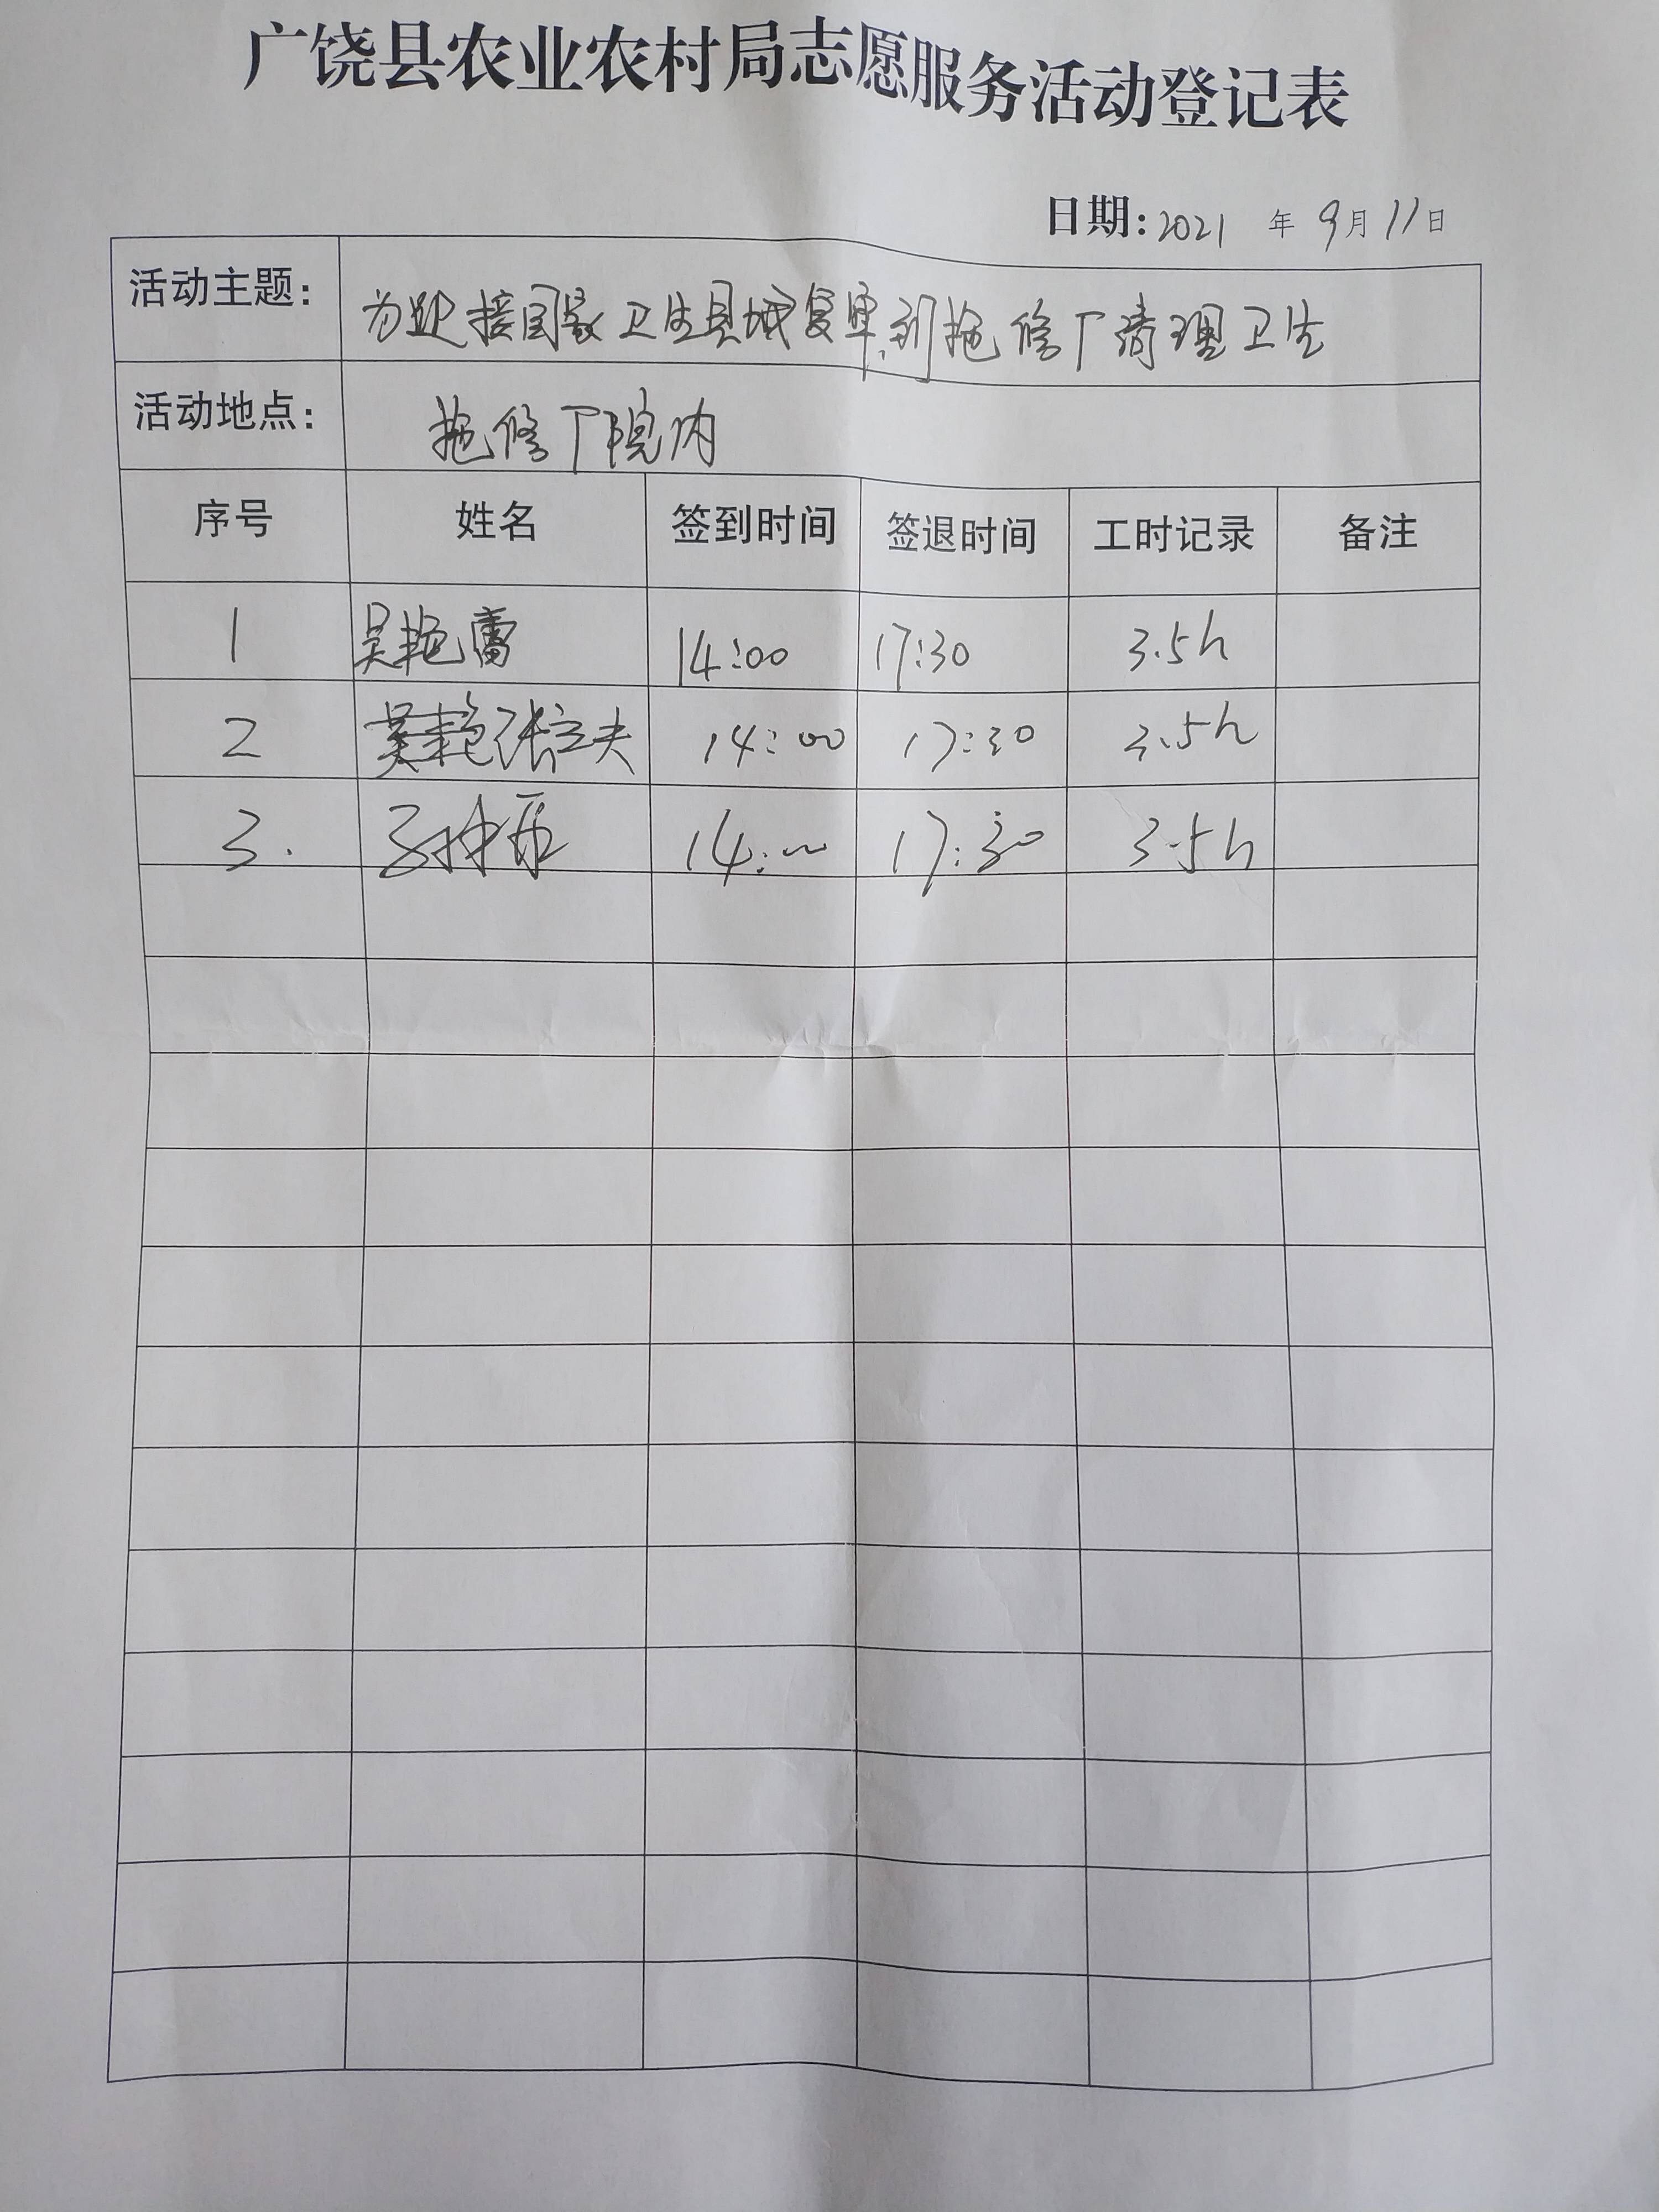 广饶县农业农村局志愿服务活动登记表
日期: 2021 年 9 月 11 日
活动主题: 为迎接国家卫生县城复审,到拖修厂清理卫生
活动地点: 拖修厂院内
序号 姓名 签到时间 签退时间 工时记录 备注
1 吴艳雷 14:00 17:30 3.5h
2 张立夫 14:00 17:30 3.5h
3. 14:00 17:30 3.5h